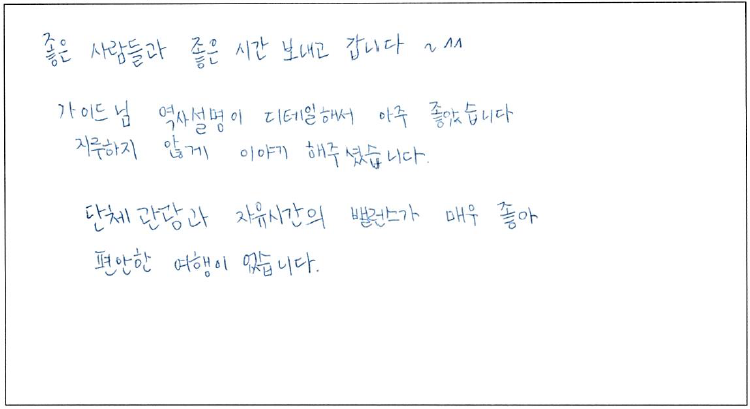 좋은 사람들과 좋은 시간 보내고 갑니다 ~^^
가이드님 역사설명이 디테일해서 아주 좋았습니다
지루하지 않게 이야기 해주셨습니다.
단체관광과 자유시간의 밸런스가 매우 좋아
편안한 여행이 었습니다.